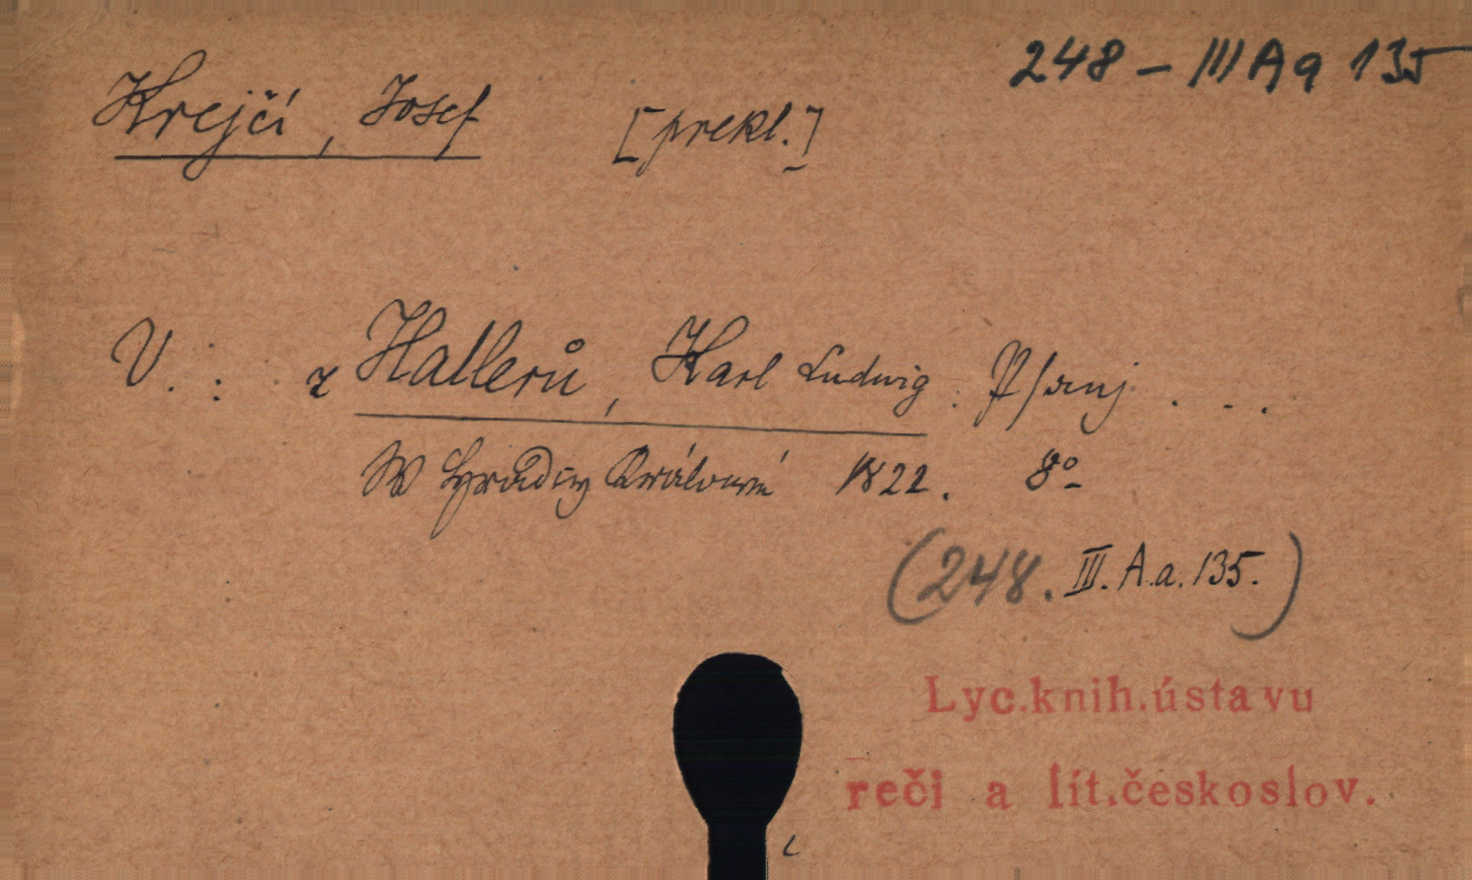 248 - III A a 135
Krejčí, Josef [prekl.]
V. : z Hallerů, Karl Ludwig. Psanj . . .
W Hradcy Králowé 1822. 8º
(248. III. A.a. 135.)
Lyc.knih.ústavu
reči a lit.českoslov.